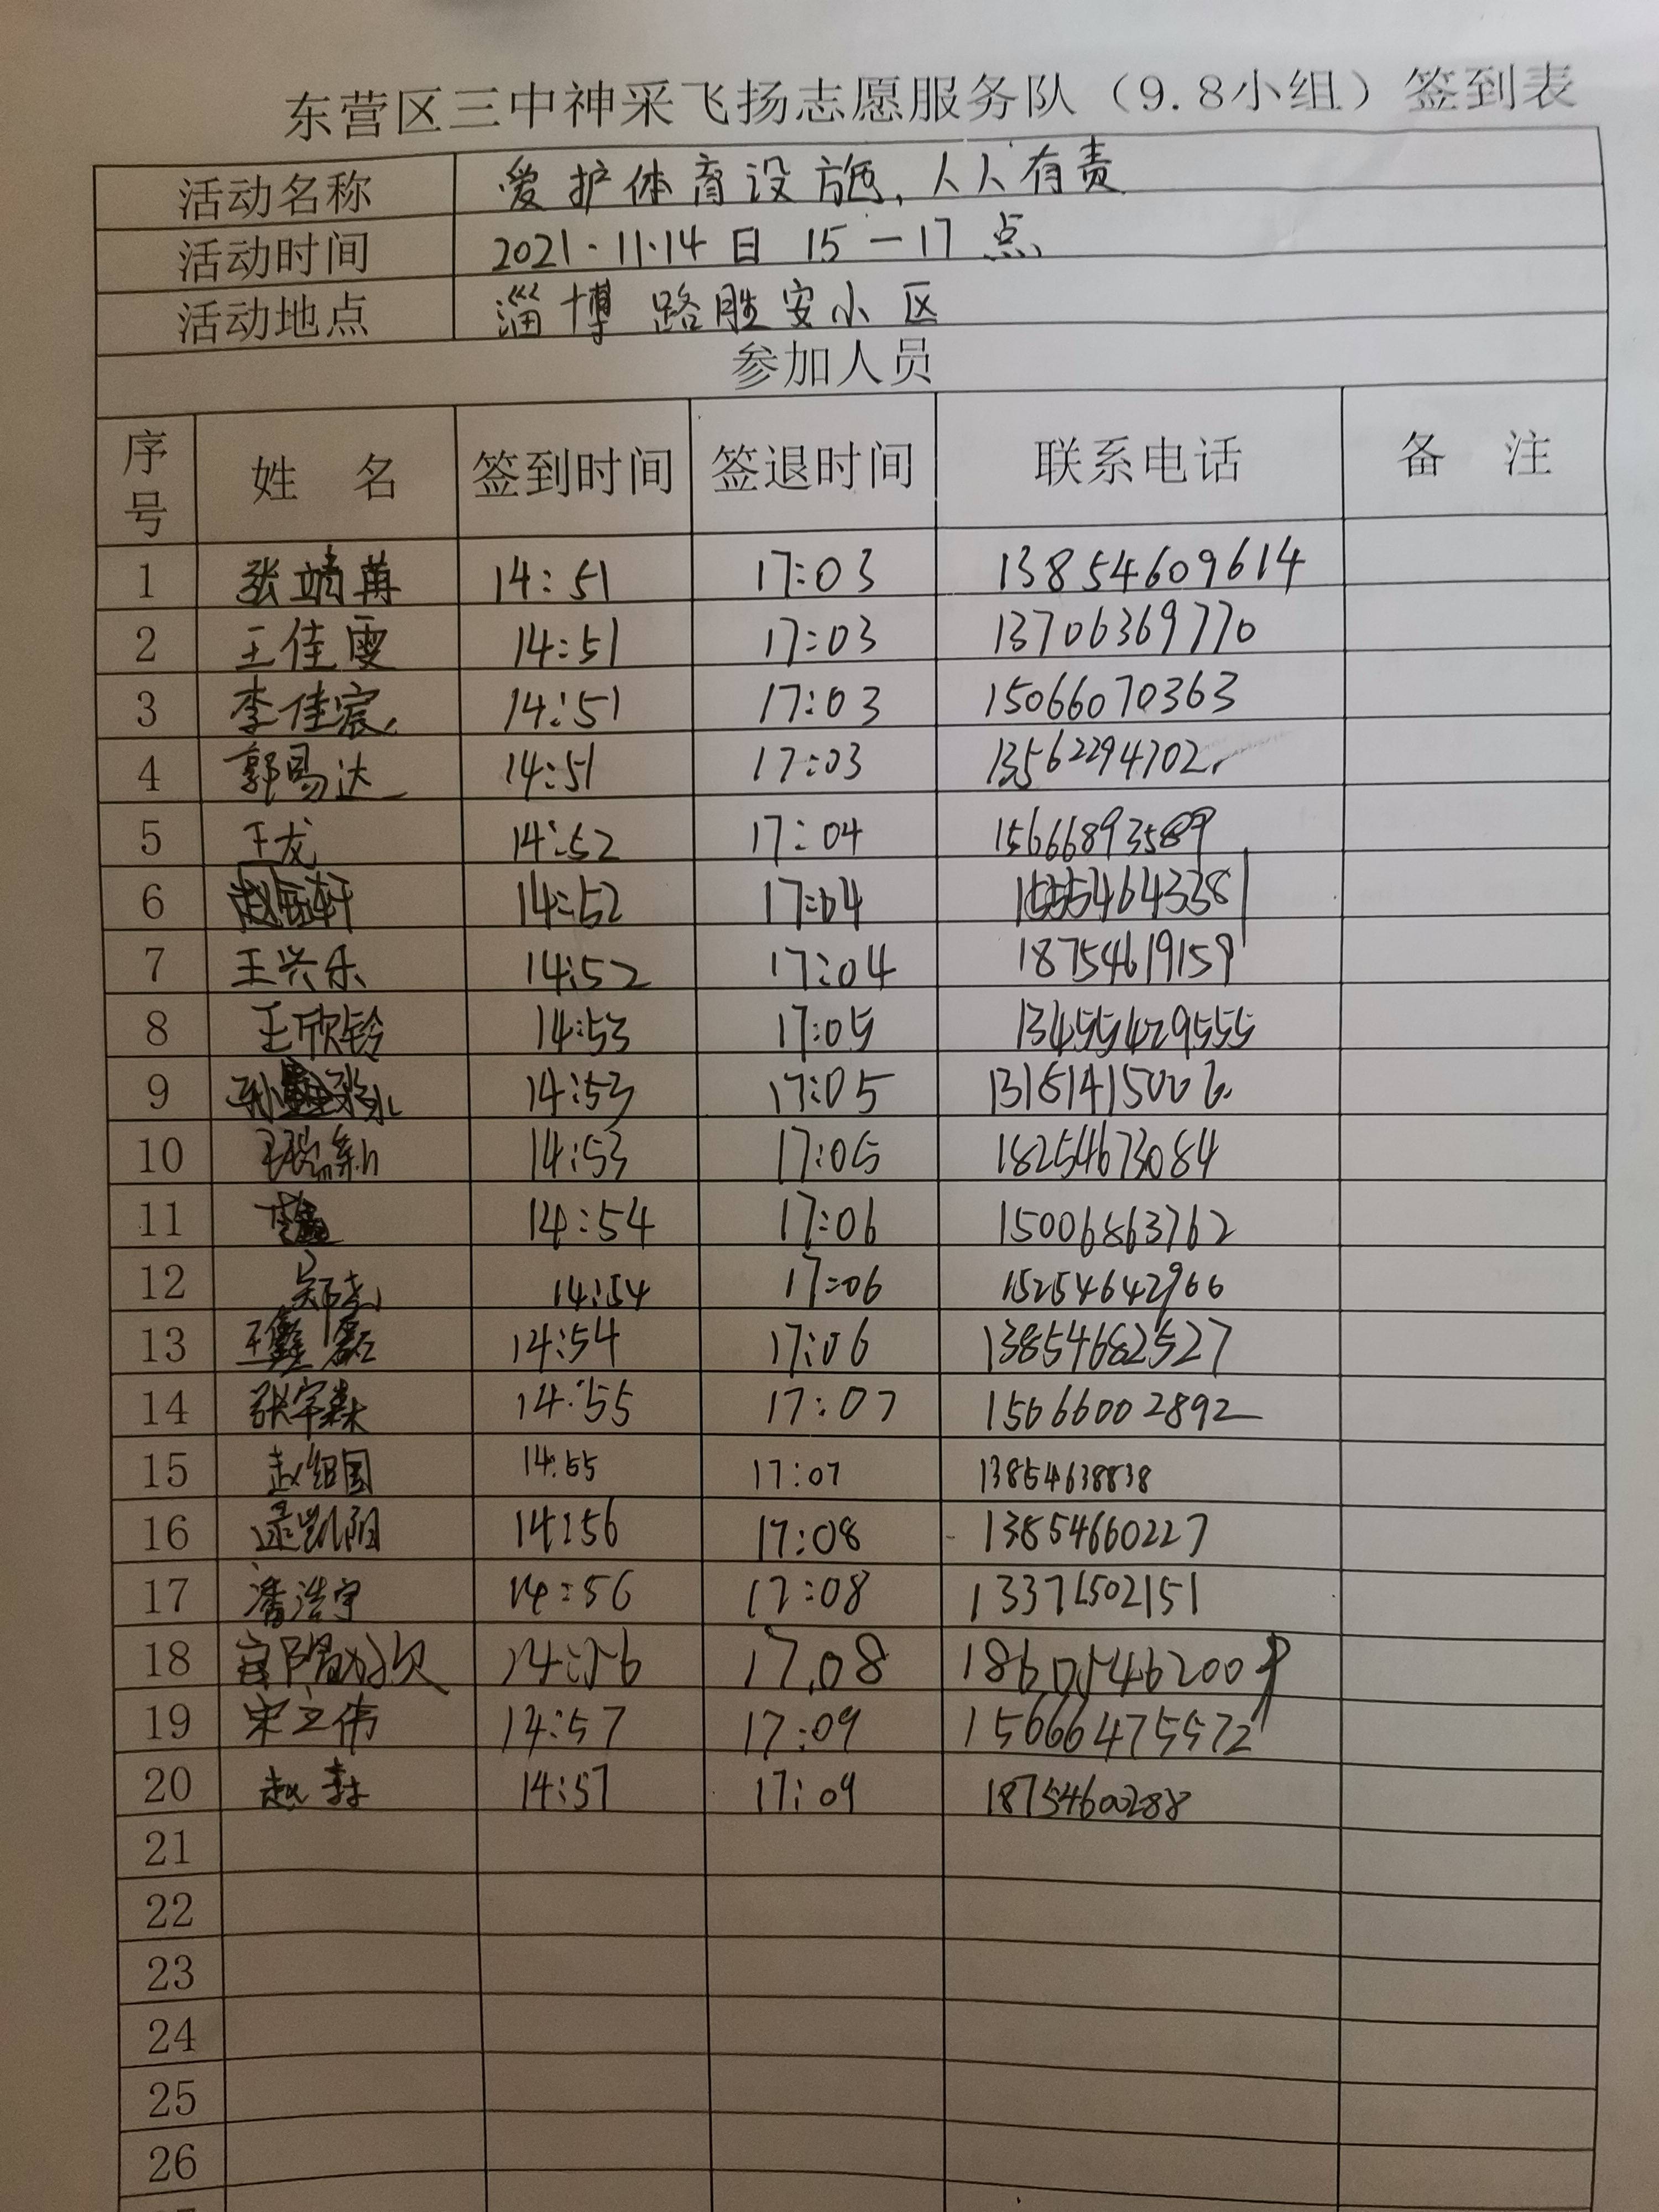 东营区三中神采飞扬志愿服务队（9.8小组）签到表
活动名称 爱护体育设施,人人有责
活动时间 2021·11·14日 15—17点
活动地点 淄博路胜安小区
参加人员
序号 姓 名 签到时间 签退时间 联系电话 备 注
1 张靖苒 14:51 17:03 13854609614
2 王佳雯 14:51 17:03 13706369770
3 李佳宸 14:51 17:03 15066070363
4 郭易达 14:51 17:03 13562294702
5 王龙 14:52 17:04 15666893589
6 14:52 17:04
7 王兴乐 14:52 17:04 18754619159
8 王欣铃 14:53 17:05 13455429555
9 14:53 17:05
10 王瑞新 14:53 17:05 18254673084
11 14:54 17:06 15006863762
12 14:54 17:06 15254642966
13 王鑫磊 14:54 17:06 13854682527
14 张宇森 14:55 17:07 15666002892
15 赵组国 14:55 17:07 13854638838
16 逯凯阳 14:56 17:08 13854660227
17 潘浩宇 14:56 17:08 13371502151
18 14:56 17,08 18605462009
19 宋立伟 14:57 17:09 15666475572
20 赵 14:57 17:09 18754600288
21
22
23
24
25
26